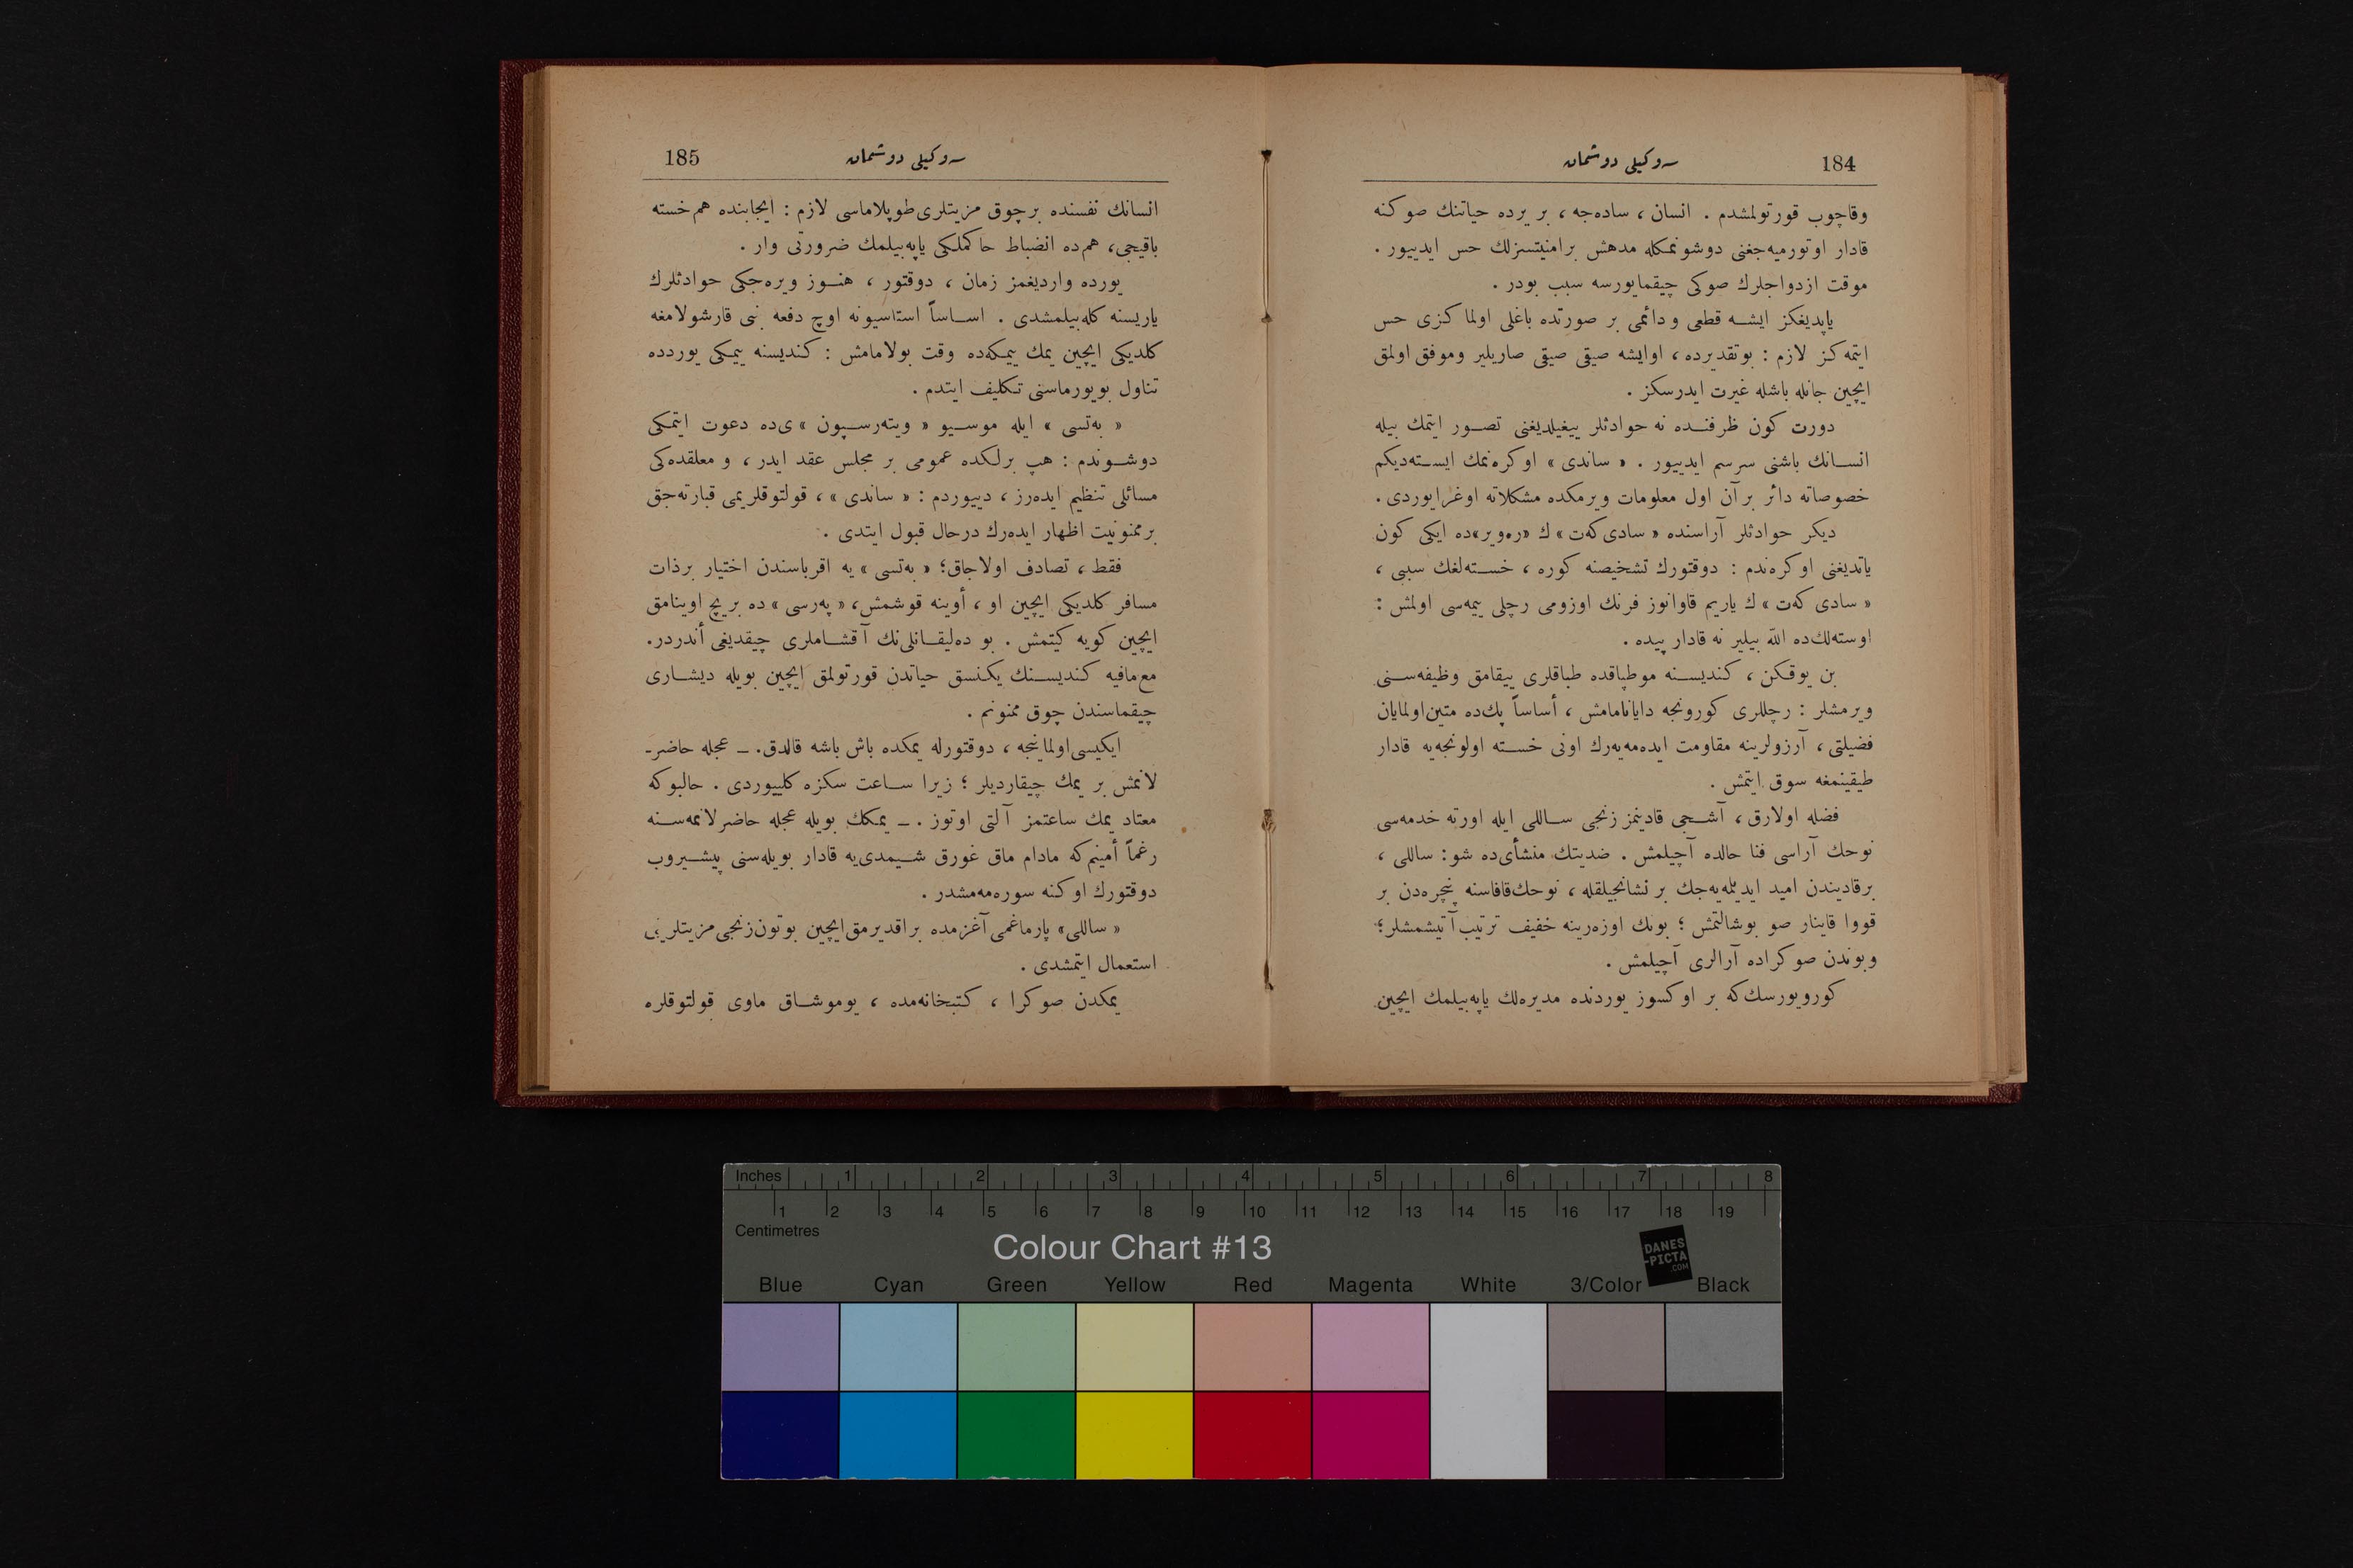 184
سوكيلى دوشمان
وقاچوب قورتولمشدم . انسان ، ساده‌جه ، بر يرده حياتنك صوكنه
قادار اوتورميه‌جغنى دوشونمكله مدهش برامنيتسزلك حس ايدييور .
موقت ازدواجلرك صوكى چيقمايورسه سبب بودر .
ياپديغكز ايشـه قطعى ودائمى بر صورتده باغلى اولما كزى حس
ايتمه كز لازم : بوتقديرده ، اوايشه صيقى صيقى صاريلير وموفق اولمق
ايچين جانله باشله غيرت ايدرسكز .
دورت كون ظرفنده نه حوادثلر ييغيلديغنى تصور ايتمك بيله
انسانك باشنى سرسم ايدييور . « ساندى » اوكره‌نمك ايسته‌ديكم
خصوصاته دائر برآن اول معلومات ويرمكده مشكلاته اوغرايوردى .
ديكر حوادثلر آراسنده « سادى كه‌ت » ك « ره‌وير » ده ايكى كون
ياتديغنى اوكره‌ندم : دوقتورك تشخيصنه كوره ، خسته‌لغك سببى ،
« سادى كه‌ت » ك ياريم قاوانوز فرنك اوزومى رچلى ييمه‌سى اولمش :
اوسته‌لك‌ده الله بيلير نه قادار پيده .
بن يوقكن ، كنديسنه موطپاقده طباقلرى ييقامق وظيفه‌سنى
ويرمشلر : رچللرى كورونجه دايانامامش ، أساساً پك‌ده متين‌اولمايان
فضيلتى ، آرزولرينه مقاومت ايده‌مه‌يه‌رك اونى خسته اولونجه‌يه قادار
طيقينمغه سوق ايتمش .
فضله اولارق ، آشجى قادينمز زنجى ساللى ايله اورته خدمه‌سى
نوحك آراسى فنا حالده آچيلمش . ضديتك منشأى‌ده شو : ساللى ،
برقاديندن اميد ايديلمه‌يه‌جك بر نشانجيلقله ، نوحك‌قافاسنه پنجره‌دن بر
قووا قاينار صو بوشالتمش ؛ بونك اوزه‌رينه خفيف ترتيب‌آتيشمشلر ؛
وبوندن صوكراده آرالرى آچيلمش .
كورويورسك‌كه بر اوكسوز يوردنده مديره‌لك ياپه‌بيلمك ايچين
سوكيلى دوشمان
185
انسانك نفسنده برچوق مزيتلرى‌طوپلاماسى لازم : ايجابنده هم‌خسته
باقيجى ، هم‌ده انضباط حاكملكى ياپه‌بيلمك ضرورتى وار .
يورده وارديغمز زمان ، دوقتور ، هنوز ويره‌جكى حوادثلرك
ياريسنه كله‌بيلمشدى . اساساً استاسيونه اوچ دفعه بنى قارشولامغه
كلديكى ايچين يمك ييمكه‌ده وقت بولامامش : كنديسنه ييمكى يوردده
تناول بويورماسنى تكليف ايتدم .
« به‌تسى » ايله موسيو « ويته‌رسپون » ى‌ده دعوت ايتمكى
دوشوندم : هپ برلكده عمومى بر مجلس عقد ايدر ، و معلقده‌كى
مسائلى تنظيم ايده‌رز ، دييوردم : « ساندى » ، قولتوقلريمى قبارته‌جق
برممنونيت اظهار ايده‌رك درحال قبول ايتدى .
فقط ، تصادف اولاجاق ؛ « به‌تسى » يه اقرباسندن اختيار برذات
مسافر كلديكى ايچين او ، أوينه قوشمش ، « په‌رسى » ده بريج اوينامق
ايچين كويه كيتمش . بو ده‌ليقانلى‌نك آقشاملرى چيقديغى أندردر .
مع‌مافيه كنديسنك يكنسق حياتدن قورتولمق ايچين بويله ديشارى
چيقماسندن چوق ممنونم .
ايكيسى‌اولماينجه ، دوقتورله يمكده باش باشه قالدق . — عجله حاضر-
لانمش بر يمك چيقارديلر ؛ زيرا ساعت سكزه كلييوردى . حالبوكه
معتاد يمك ساعتمز آلتى اوتوز . — يمكك بويله عجله حاضرلانمه‌سنه
رغماً أمينم‌كه مادام ماق غورق شيمدى‌يه قادار بويله‌سنى پيشيروب
دوقتورك اوكنه سوره‌مه‌مشدر .
« ساللى » پارماغمى آغزمده براقديرمق‌ايچين بوتون‌زنجى‌مزيتلرينى
استعمال ايتمشدى .
يمكدن صوكرا ، كتبخانه‌مده ، يوموشاق ماوى قولتوقلره
Inches 1 2 3 4 5 6 7 8
1 2 3 4 5 6 7 8 9 10 11 12 13 14 15 16 17 18 19
Centimetres
Colour Chart #13
DANES
-PICTA
.COM
Blue Cyan Green Yellow Red Magenta White 3/Color Black